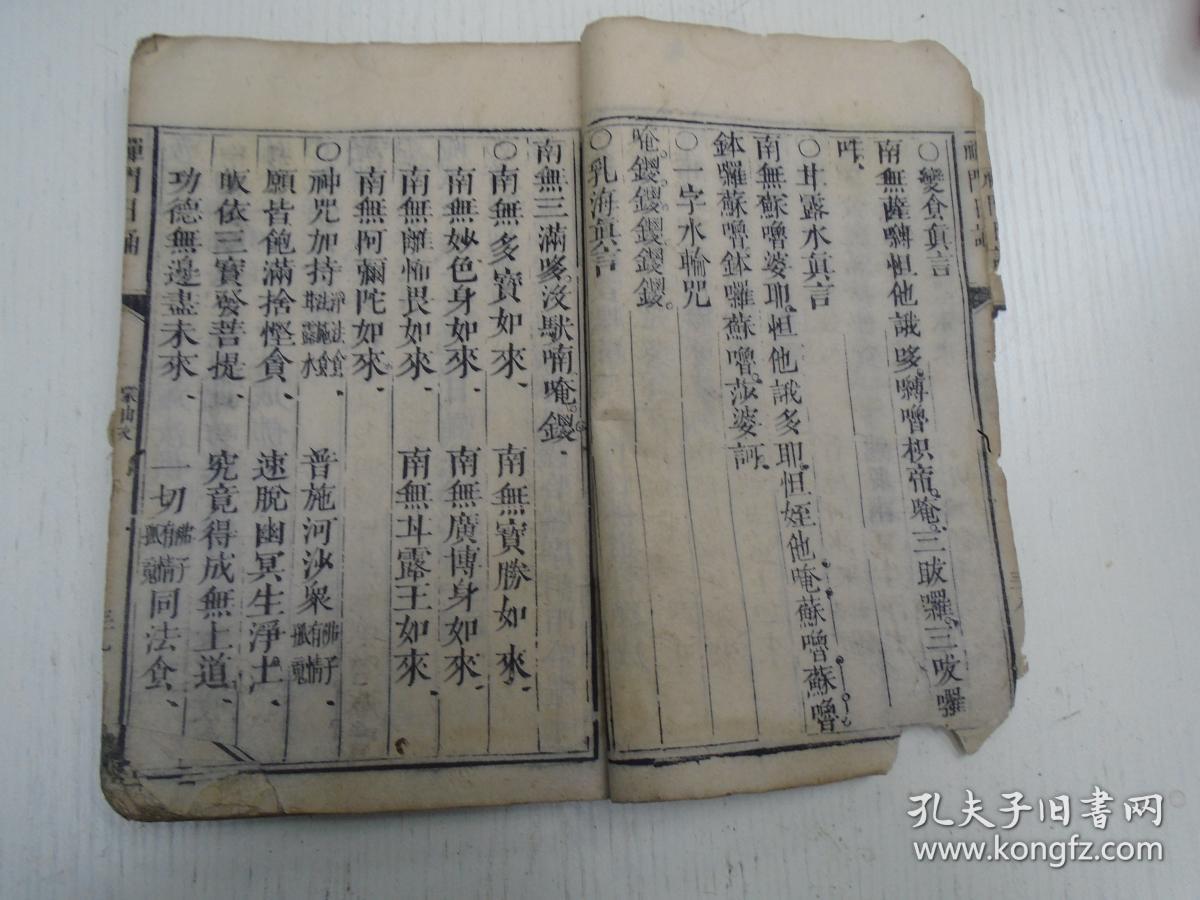 ○變食眞言
南無薩嚩怛他誐哆嚩嚕枳帝唵三跋囉三跋囉
吽
○甘露水眞言
南無蘇嚕婆耶怛他誐多耶怛姪他唵蘇嚕蘇嚕
鉢囉蘇嚕鉢囉蘇嚕莎婆訶
○一字水輪咒
唵鑁鑁鑁鑁鑁
○乳海眞言
南無三滿哆沒馱喃唵鑁
○南無多寶如來 南無寶勝如來
南無妙色身如來 南無廣博身如來
南無離怖畏如來 南無甘露王如來
南無阿彌陀如來
○神咒加持淨法食法施食甘露水 普施河沙衆佛子有情孤魂
願皆飽滿捨慳貪 速脫幽冥生淨土
皈依三寶發菩提 究竟得成無上道
功德無邊盡未來 一切佛子有情孤魂同法食
禪門日誦
蒙山文
孔夫子旧书网
www.kongfz.com